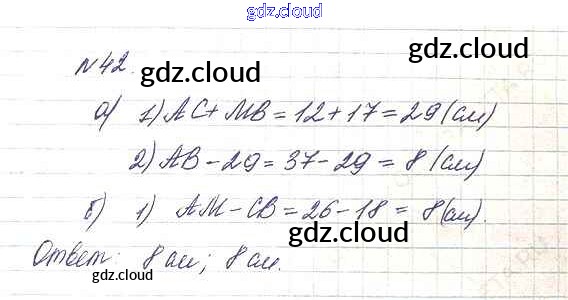 gdz.cloud
gdz.cloud
№42.
gdz.cloud
а) 1) AC + MB = 12 + 17 = 29 (см)
2) AB - 29 = 37 - 29 = 8 (см)
gdz.cloud
б) 1) AM - CB = 26 - 18 = 8 (см).
gdz.cloud
Ответ: 8 см; 8 см.
gdz.cloud